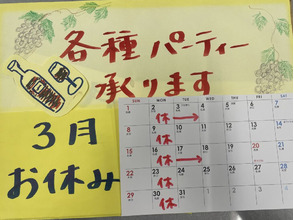 各種パーティー
承ります
3月
お休み
SUN MON TUE WED THU FRI SAT
1 2 3 4 5 6 7
休
8 9 10 11 12 13 14
休
15 16 17 18 19 20 21
休
22 23 24 25 26 27 28
休
29 30 31
休